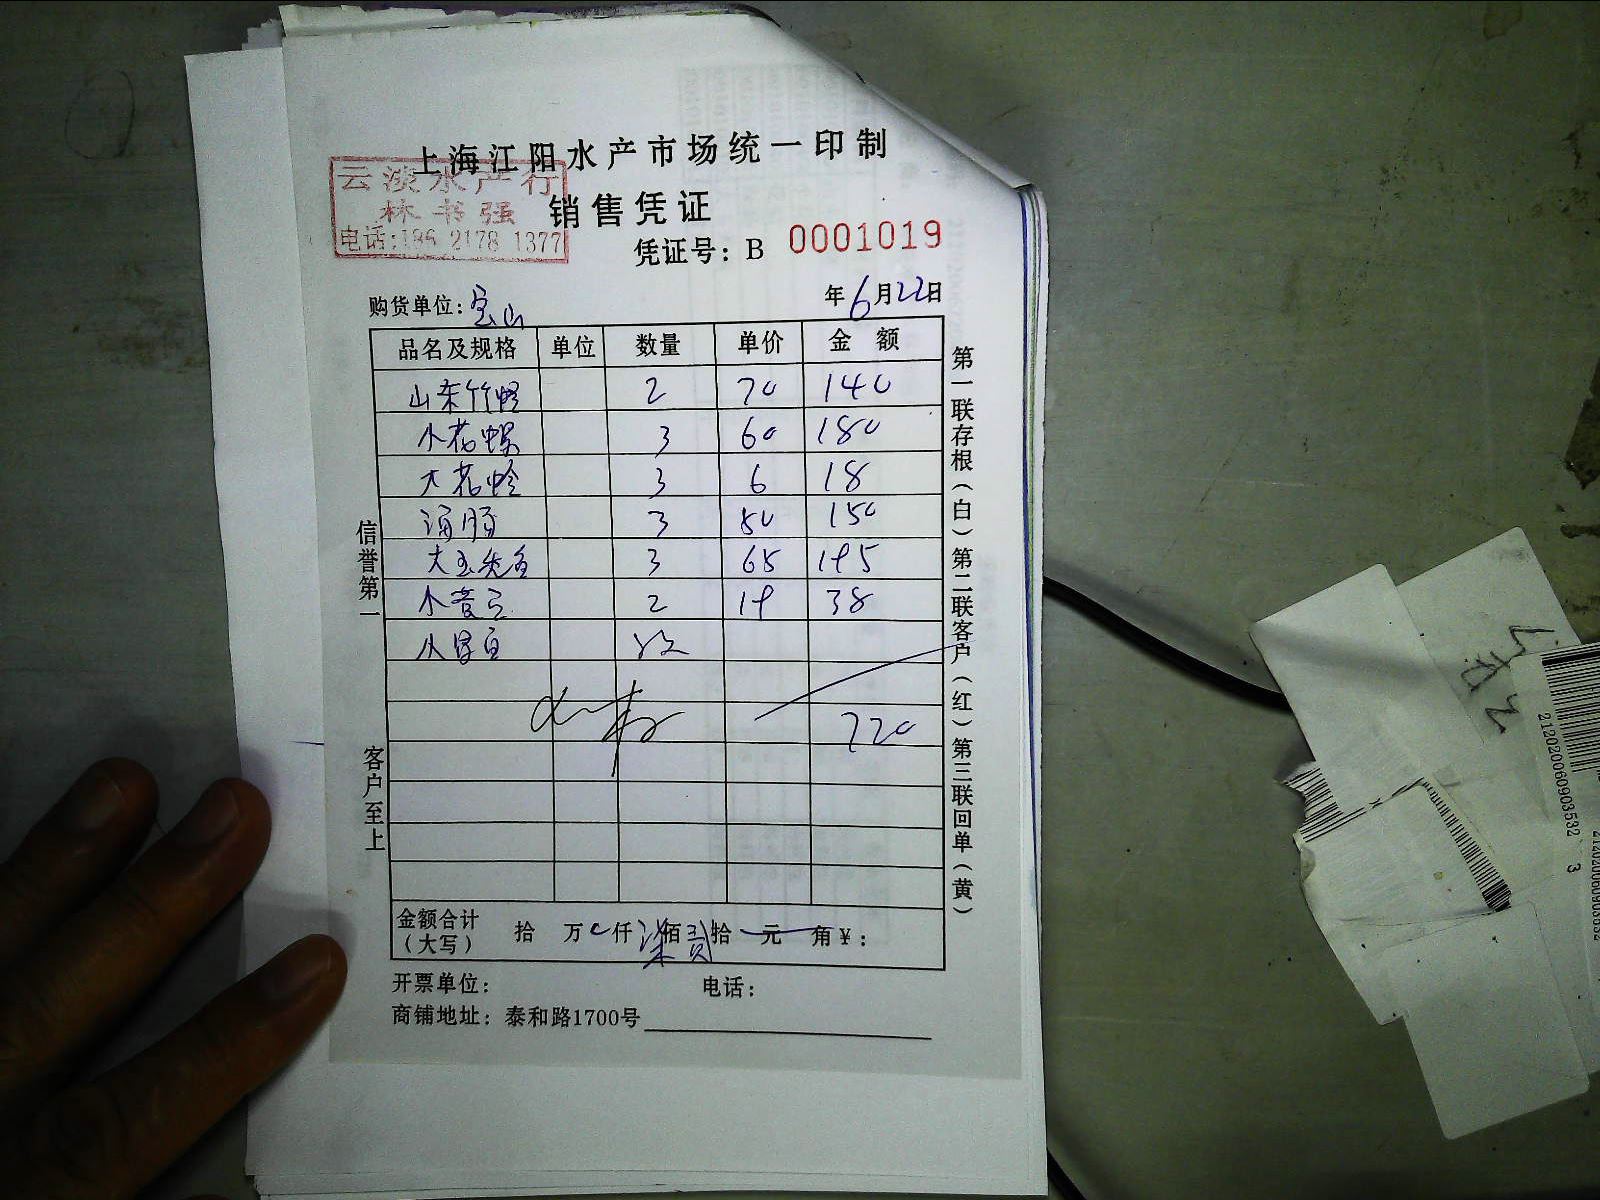 上海江阳水产市场统一印制
云淡水产行
林书强
电话:186 2178 1377
销售凭证
凭证号: B 0001019
购货单位: 宝山 年6月22日
品名及规格 单位 数量 单价 金额
山东竹蛏 2 70 140
小花螺 3 60 180
大花蛤 3 6 18
海肠 3 50 150
大玉 3 65 195
小黄 2 19 38
小
720
金额合计(大写) 拾 万 仟 柒佰 贰拾 元 角 ¥:
开票单位: 电话:
商铺地址: 泰和路1700号
信誉第一
客户至上
第一联存根(白) 第二联客户(红) 第三联回单(黄)
2120200609035323